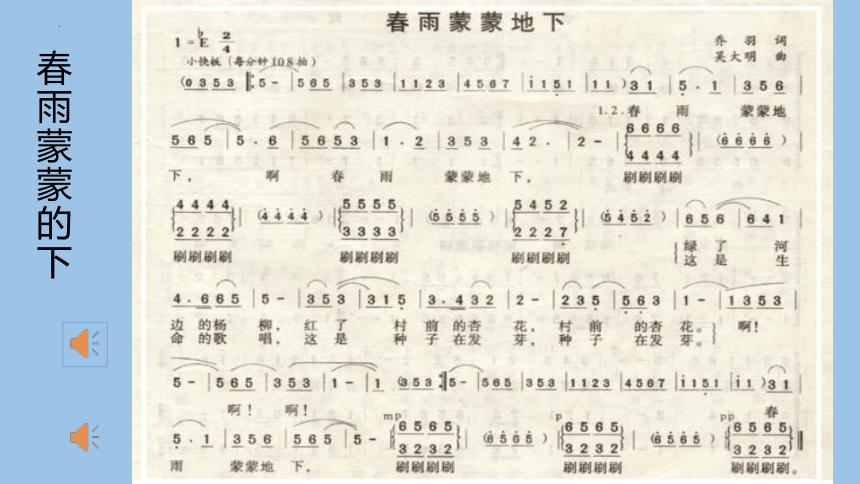 春雨蒙蒙的下
春雨蒙蒙地下
1=♭E 2/4
小快板(每分钟108拍)
乔羽 词
吴大明 曲
(0 3 5 3 ‖: 5 - | 5 6 5 | 3 5 3 | 1 1 2 3 | 4 5 6 7 | i i 5 1 | i i ) 3 1 | 5 . 1 | 3 5 6 |
1.2.春 雨 蒙蒙地
5 6 5 | 5 . 6 | 5 6 5 3 | 1 . 2 | 3 5 3 | 4 2 . | 2 - | 6 6 6 6 | (6 6 6 6 ) |
4 4 4 4
下, 啊 春 雨 蒙蒙地 下, 刷刷刷刷
4 4 4 4 | (4 4 4 4 ) | 5 5 5 5 | (5 5 5 5 ) | 5 4 5 2 | (5 4 5 2 ) | 6 5 6 | 6 4 1 |
2 2 2 2 3 3 3 3 2 2 2 7
刷刷刷刷 刷刷刷刷 刷刷刷刷 绿 了 河
这 是 生
4 . 6 6 5 | 5 - | 3 5 3 | 3 1 5 | 3 . 4 3 2 | 2 - | 2 3 5 | 5 6 3 | 1 - | 1 3 5 3 |
边 的杨 柳, 红 了 村 前 的杏 花, 村 前 的杏 花。 啊!
命 的歌 唱, 这 是 种 子 在发 芽, 种 子 在发 芽。
5 - | 5 6 5 | 3 5 3 | 1 - | 1 (3 5 3 :‖ 5 - | 5 6 5 | 3 5 3 | 1 1 2 3 | 4 5 6 7 | i i 5 1 | i i ) 3 1 |
啊! 啊! 春
mp p pp
5 . 1 | 3 5 6 | 5 6 5 | 5 - | 6 5 6 5 | (6 5 6 5 ) | 6 5 6 5 | (6 5 6 5 ) | 6 5 6 5 ‖
3 2 3 2 3 2 3 2 3 2 3 2
雨 蒙蒙地 下, 刷刷刷刷 刷刷刷刷 刷刷刷刷。